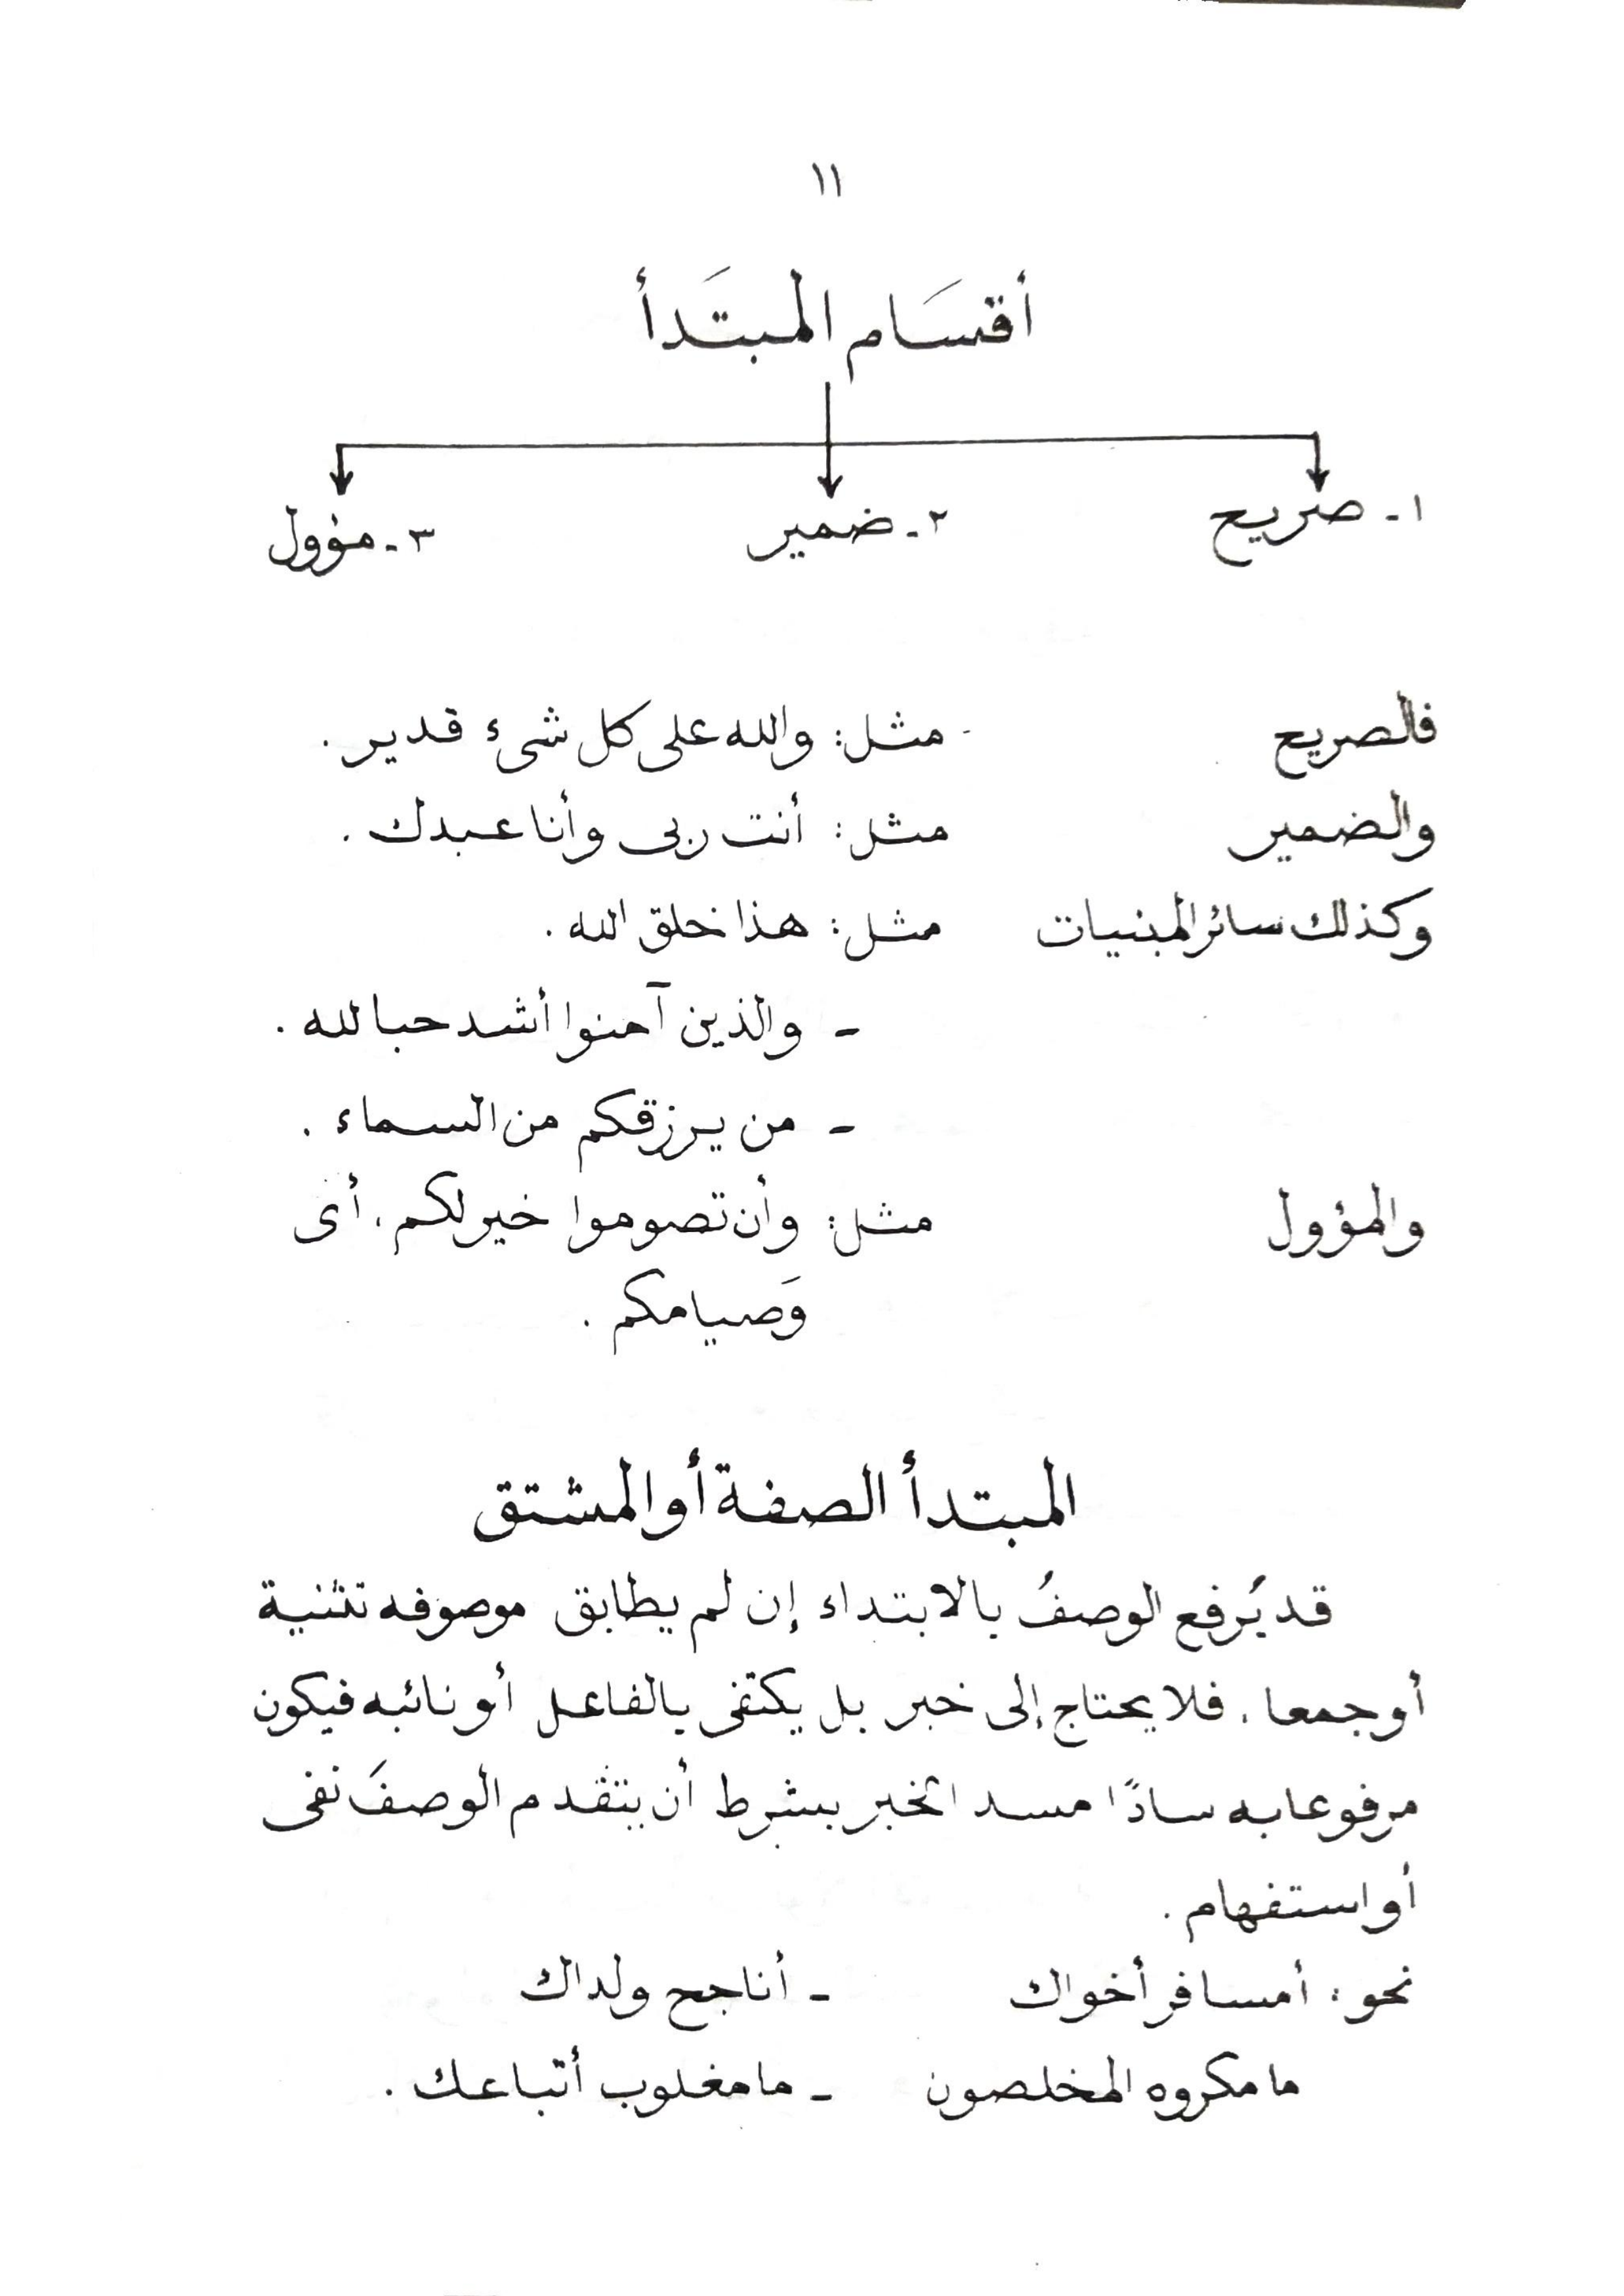 ١١
أقسَام المبتَدأ
١- صريح ٢- ضمير ٣- مؤول
فالصريح مثل: والله على كل شىء قدير.
والضمير مثل: أنت ربى وأنا عبدك.
وكذلك سائر المبنيات مثل: هذا خلق الله.
- والذين آمنوا أشد حبا لله.
- من يرزقكم من السماء.
والمؤول مثل: وأن تصوموا خير لكم، أى
وَصيامكم.
المبتدأ الصفة أو المشتق
قد يُرفع الوصفُ بالابتداء إن لم يطابق موصوفه تثنية
أو جمعا، فلا يحتاج إلى خبر بل يكتفى بالفاعل أو نائبه فيكون
مرفوعا به سادًا مسد الخبر بشرط أن يتقدم الوصفَ نفى
أو استفهام.
نحو: أمسافر أخواك - أناجح ولداك
ما مكروه المخلصون - ما مغلوب أتباعك.